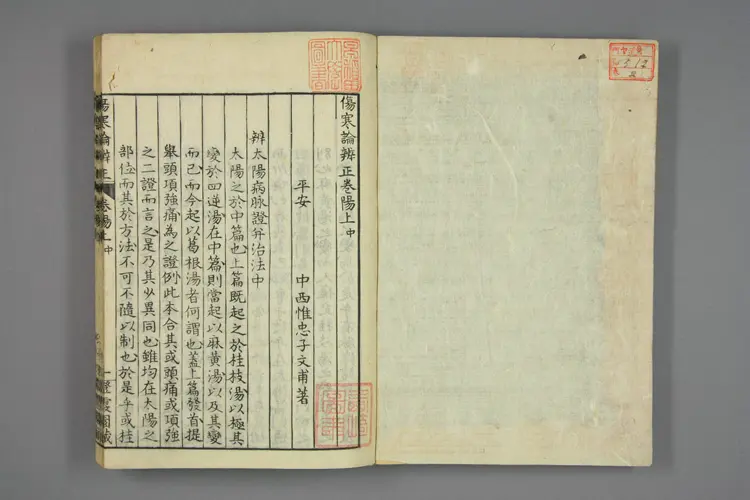 傷寒論辨正卷陽上中
平安 中西惟忠子文甫著
辨太陽病脉證并治法中
太陽之於中篇也上篇既起之於桂枝湯以極其
變於四逆湯在中篇則當起以麻黃湯以及其變
而已而今起以葛根湯者何謂也蓋上篇發首提
舉頭項強痛為之證例此本合其或頭痛或項強
之二證而言之是乃其少異同也雖均在太陽之
部位而其於方法不可不隨以制也於是乎或桂
傷寒論辨正 卷陽上中 一